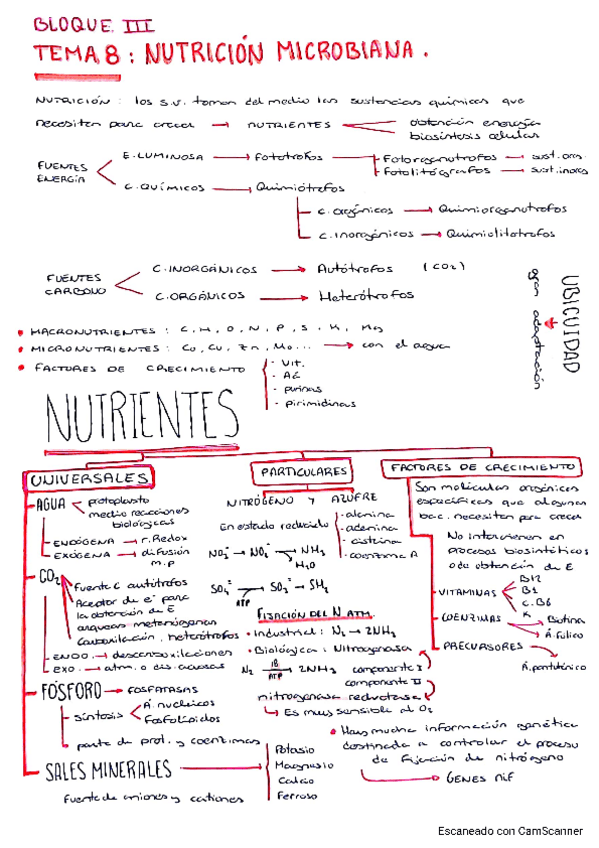 BLOQUE III
TEMA 8: NUTRICIÓN MICROBIANA.
NUTRICIÓN: los s.v. toman del medio las sustancias químicas que
necesitan para crecer → NUTRIENTES
obtención energía
biosíntesis celulares
FUENTES ENERGÍA
E. LUMINOSA → Fotótrofos
Fotorganotrofos → sust. org
Fotolitógrafos → sust. inorg
C. QUÍMICOS → Quimiótrofos
C. orgánicos → Quimiorganotrofos
C. inorgánicos → Quimiolitotrofos
FUENTES CARBONO
C. INORGÁNICOS → Autótrofos (CO2)
C. ORGÁNICOS → Heterótrofos
UBICUIDAD
gran adaptación
• MACRONUTRIENTES: C, H, O, N, P, S, K, Mg
• MICRONUTRIENTES: Co, Cu, Zn, Mo... → con el agua
• FACTORES DE CRECIMIENTO
- Vit.
- AE
- purinas
- pirimidinas
NUTRIENTES
UNIVERSALES
AGUA
protoplasto
medio reacciones biológicas
ENDÓGENA → r. Redox
EXÓGENA → difusión m.p
CO2
Fuente C autótrofos
Aceptor de e- para la obtención de E arqueas metanógenas
Carboxilación heterótrofos
ENDO. → descarboxilaciones
EXO. → atm. o dis. acuosas
FÓSFORO → FOSFATASAS
- síntesis
Á nucleicos
Fosfolípidos
parte de prot. y coenzimas
SALES MINERALES
Potasio
Magnesio
Calcio
Ferroso
Fuente de aniones y cationes
PARTICULARES
NITRÓGENO Y AZUFRE
En estado reducido
- alanina
- adenina
- cisteina
- coenzima A
NO3- → NO2- → NH3
H2O
SO4= → SO3= → SH2
ATP
FIJACIÓN DEL N ATM.
• Industrial: N2 → 2NH3
• Biológica: Nitrogenasa
N2 → 2NH3
ATP
componente I
componente II
nitrogenasa reductasa
Es muy sensible al O2
FACTORES DE CRECIMIENTO
Son moléculas orgánicas
específicas que algunas
bac. necesitan para crecer
No intervienen en
procesos biosintéticos
o de obtención de E
- VITAMINAS
B12
B1
C. B6
K
- COENZIMAS
Biotina
Á. fólico
- PRECURSORES
Á. pantoténico
• Hay mucha información genética
destinada a controlar el proceso
de fijación de nitrógeno
GENES nif
Escaneado con CamScanner